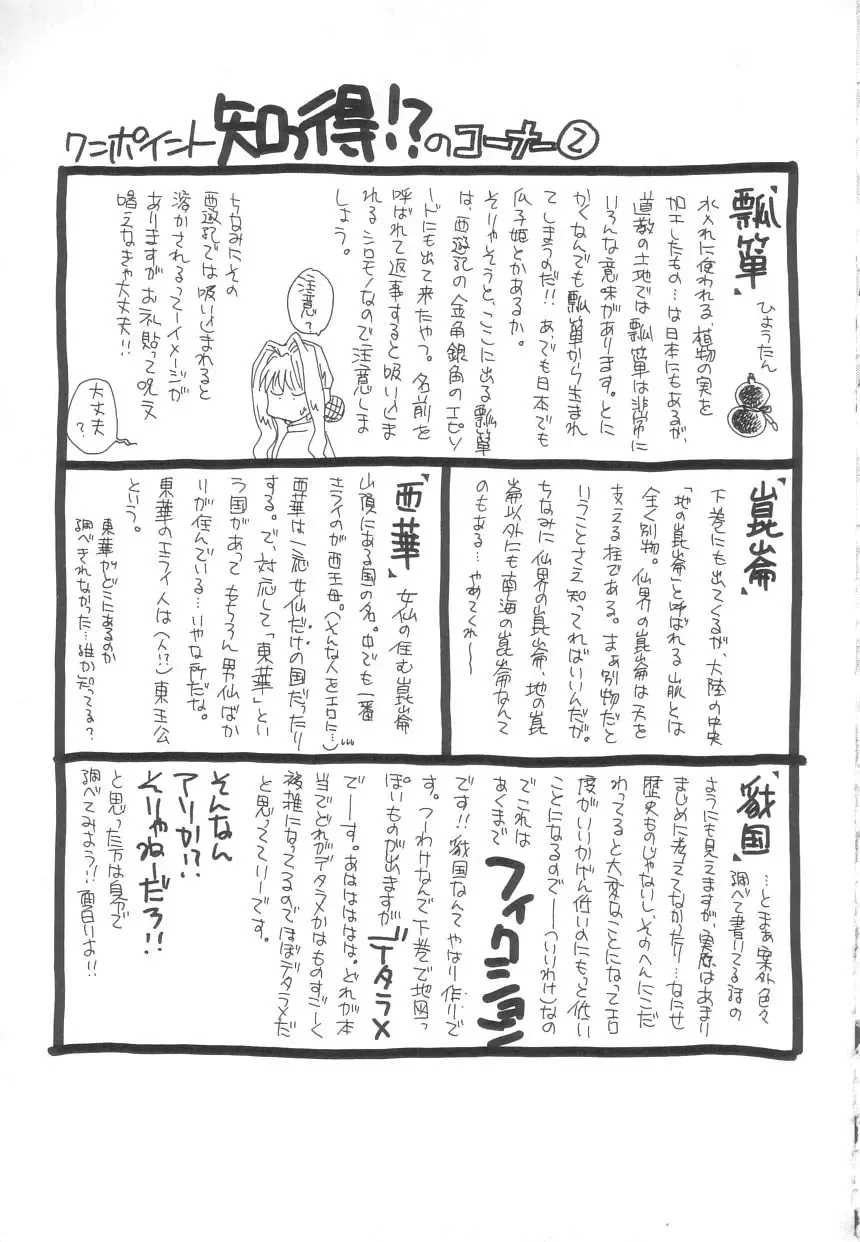 ワンポイント知っ得!?のコーナー②
瓢箪
ひょうたん
水入れに使われる、植物の実を
加工したもの…は日本にもあるが、
道教の土地では瓢箪は非常に
いろんな意味があります。とに
かくなんでも瓢箪から生まれ
てしまうのだ!!あ、でも日本でも
瓜子姫とかあるか。
そりゃそうと、ここに出る瓢箪
は、西遊記の金角銀角のエピソ
ードにも出て来たやつ。名前を
呼ばれて返事すると吸い込ま
れるシロモノなので注意しま
しょう。
注意?
ちなみにその
西遊記では吸い込まれると
溶かされるってーイメージが
ありますがお札貼って呪文
唱えなきゃ大丈夫!!
大丈夫?
崑崙
下巻にも出てくるが、大陸の中央
「地の崑崙」と呼ばれる山脈とは
全く別物。仙界の崑崙は天を
支える柱である。まぁ別物だと
いうことさえ知ってればいいんだが。
ちなみに仙界の崑崙、地の崑
崙以外にも南海の崑崙なんて
のもある…やめてくれ〜〜
西華
女仙の住む崑崙
山頂にある国の名。中でも一番
エライのが西王母。(そんな人をエロに…)
西華は一応女仙だけの国だったり
する。で、対応して「東華」とい
う国があってもちろん男仙ばか
りが住んでいる…いやな所だな。
東華のエライ人は(人!?)東王公
という。
東華がどこにあるのか
調べきれなかった…誰か知ってる?
戩国
…とまぁ案外色々
調べて書いてる話の
ようにも見えますが、実際はあまり
まじめに考えてなかったり…なにせ
歴史ものじゃないし、そのへんにこだ
わってると大変なことになってエロ
度がいいかげん低いのにもっと低い
ことになるので──(いいわけ)なの
でこれは
あくまで
フィクション
です!!戩国なんてやはり作りで
す。つーわけなんで下巻で地図っ
ぽいものが出ますがデタラメ
でーす。あはははは。どれが本
当でどれがデタラメかはものすごーく
複雑になってるのでほぼデタラメだ
と思っててりーです。
そんなん
アリか!?
そりゃねーだろ!!
と思った方は自分で
調べてみよう!!面白いよ!!